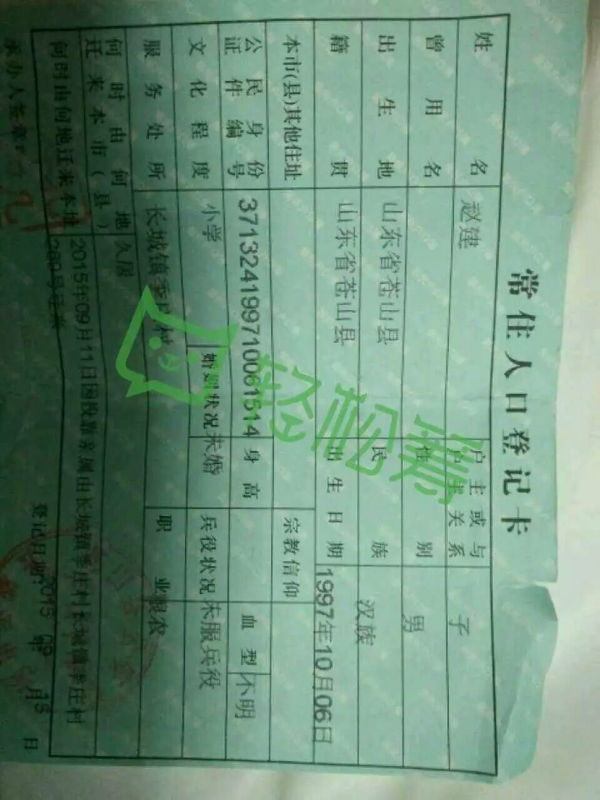 常住人口登记卡
姓名 赵建 户主或与户主关系 子
曾用名 性别 男
出生地 山东省苍山县 民族 汉族
籍贯 山东省苍山县 出生日期 1997年10月06日
本市(县)其他住址 宗教信仰
公民身份证件编号 371324199710061514 身高 血型 不明
文化程度 小学 婚姻状况 未婚 兵役状况 未服兵役
服务处所 长城镇李庄村 职业 粮农
何时由何地迁来本市(县) 久居
何时由何地迁来本址 2015年09月11日因投靠亲属由长城镇李庄村长城镇李庄村
号迁来
承办人签章 登记日期: 2015年09月 日
轻松筹